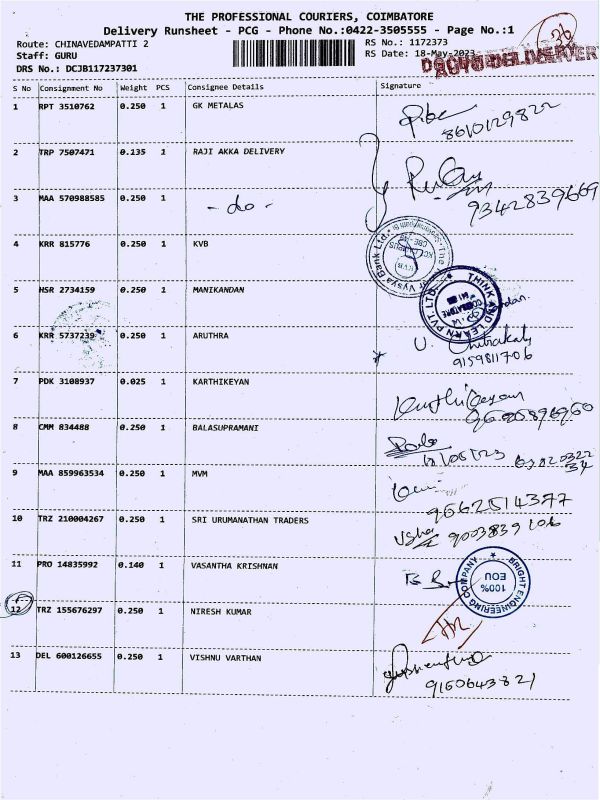 THE PROFESSIONAL COURIERS, COIMBATORE
Delivery Runsheet - PCG - Phone No.:0422-3505555 - Page No.:1
Route: CHINAVEDAMPATTI 2
RS No.: 1172373
Staff: GURU
RS Date: 18-May-2023
DRS No.: DCJB117237301
S No Consignment No Weight PCS Consignee Details Signature
1 RPT 3510762 0.250 1 GK METALAS
8610129822
2 TRP 7507471 0.135 1 RAJI AKKA DELIVERY
3 MAA 570988585 0.250 1 - do -
9342839669
4 KRR 815776 0.250 1 KVB
Vysya Bank Ltd.
5 HSR 2734159 0.250 1 MANIKANDAN
THINK AND LEARN PVT. LTD.
COIMBATORE
6 KRR 5737239 0.250 1 ARUTHRA
9159811706
7 PDK 3108937 0.025 1 KARTHIKEYAN
8 CMM 834488 0.250 1 BALASUPRAMANI
9 MAA 859963534 0.250 1 MVM
9662514377
10 TRZ 210004267 0.250 1 SRI URUMANATHAN TRADERS
9003839106
11 PRO 14835992 0.140 1 VASANTHA KRISHNAN
BRIGHT ENGINEERING COMPANY
100%
EOU
12 TRZ 155676297 0.250 1 NIRESH KUMAR
13 DEL 600126655 0.250 1 VISHNU VARTHAN
9150643821